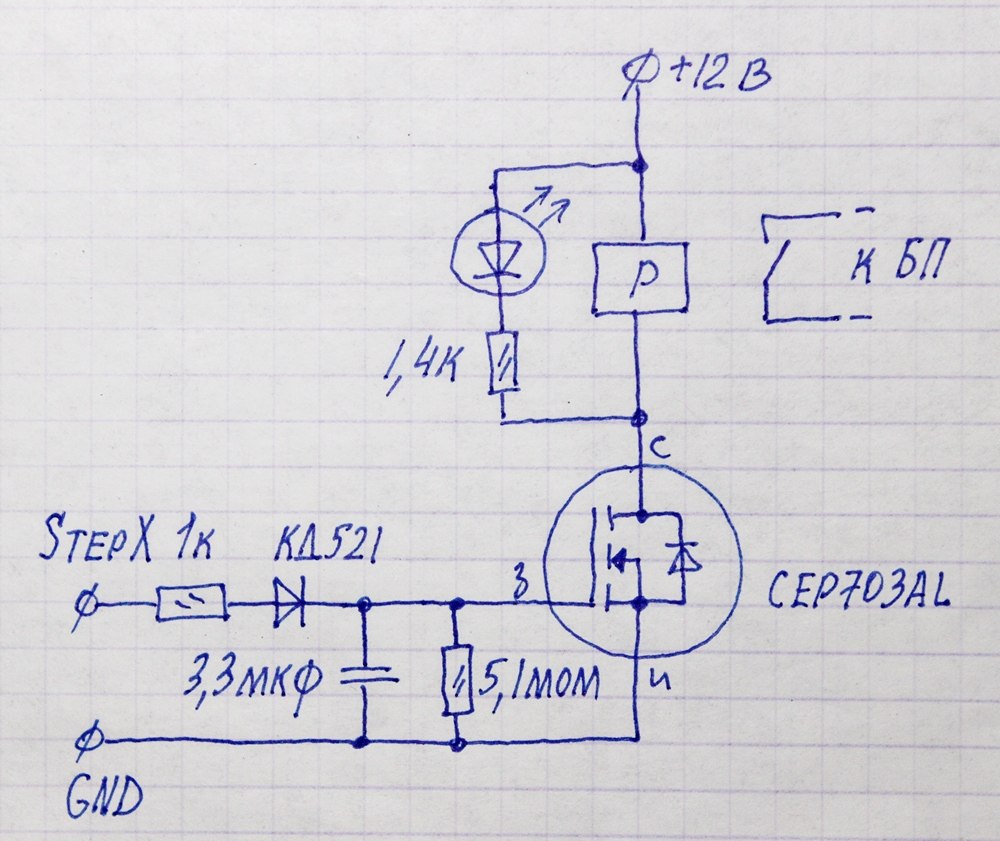 +12 В
P
к БП
1,4к
С
StepX 1к КД521
З
CEP703AL
3,3мкф
5,1мом
и
GND